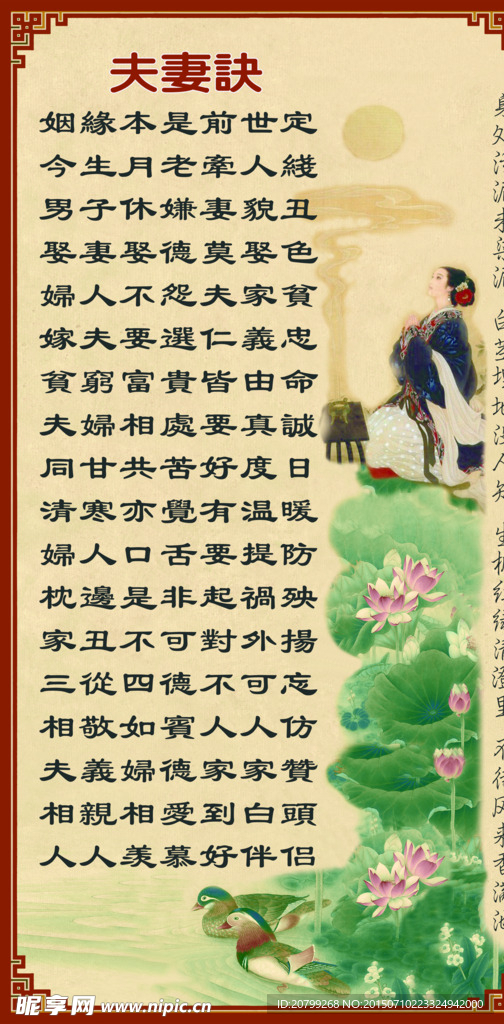 夫妻訣
姻緣本是前世定
今生月老牽人綫
男子休嫌妻貌丑
娶妻娶德莫娶色
婦人不怨夫家貧
嫁夫要選仁義忠
貧窮富貴皆由命
夫婦相處要真誠
同甘共苦好度日
清寒亦覺有温暖
婦人口舌要提防
枕邊是非起禍殃
家丑不可對外揚
三從四德不可忘
相敬如賓人人仿
夫義婦德家家贊
相親相愛到白頭
人人羡慕好伴侣
昵享网 www.nipic.cn
ID:20799268 NO:20150710223324942000